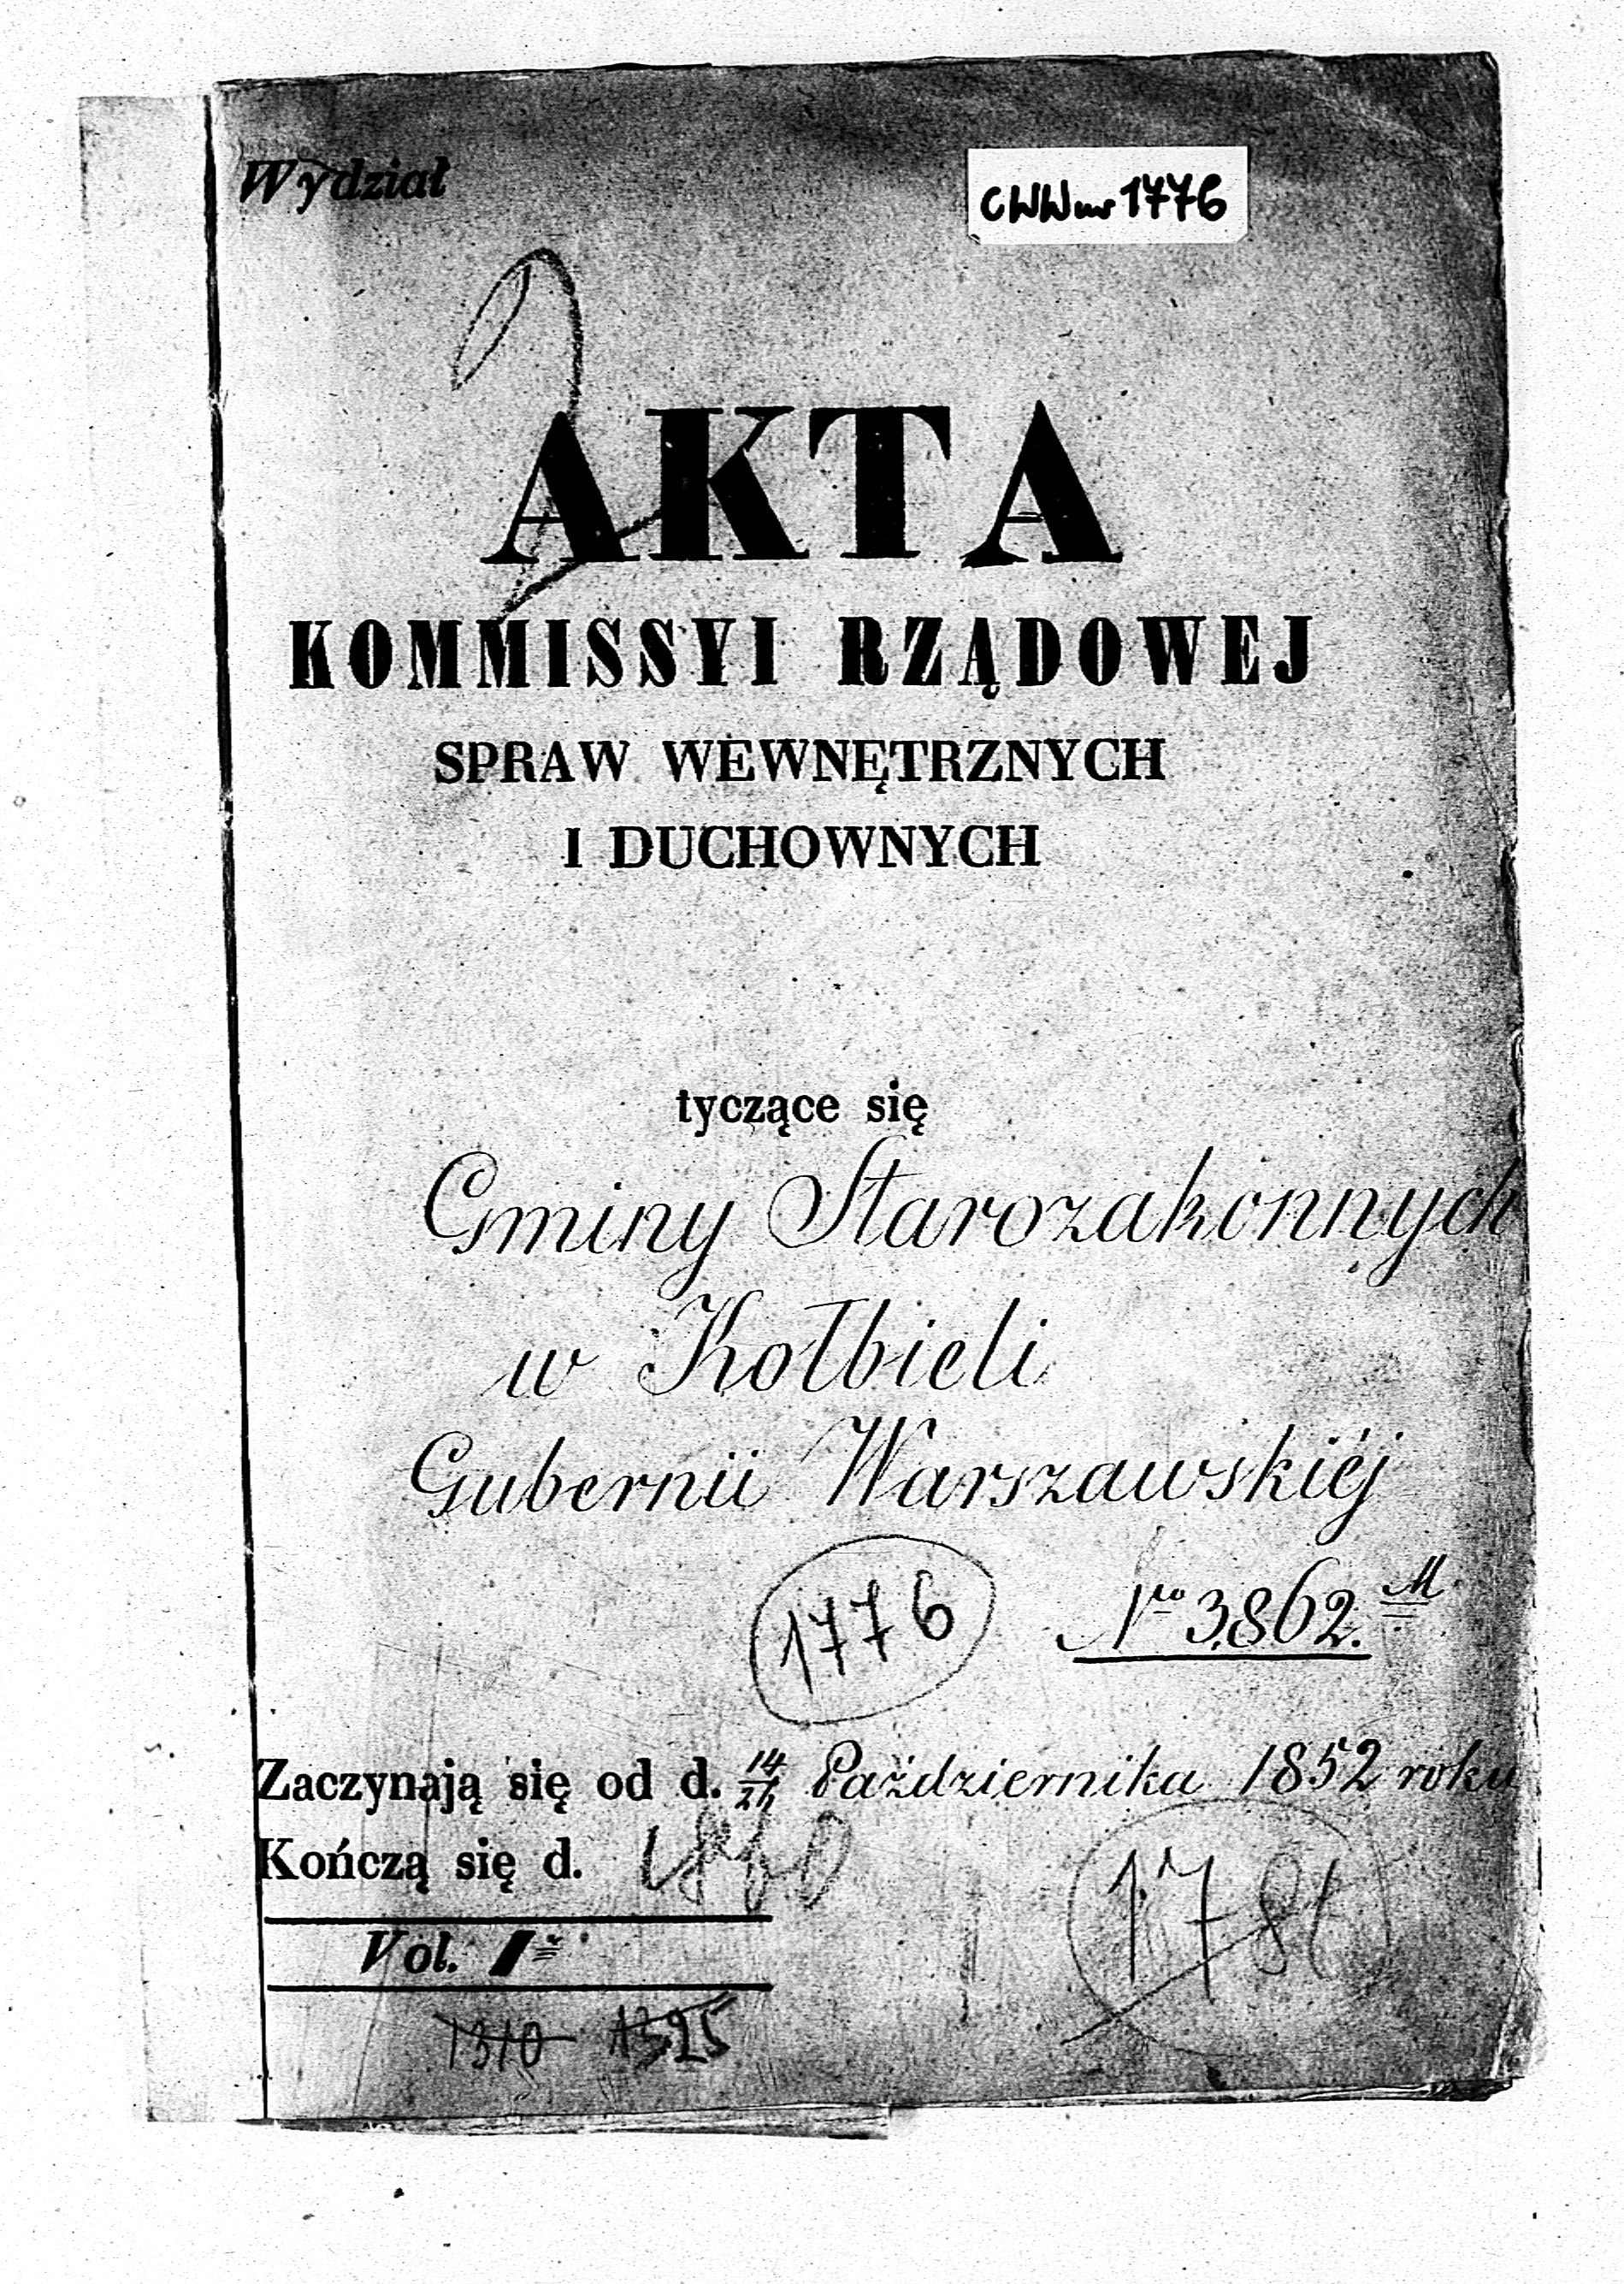 Wydział
CWWnr 1776
2
AKTA
KOMMISSYI RZĄDOWEJ
SPRAW WEWNĘTRZNYCH
I DUCHOWNYCH
tyczące się
Gminy Starozakonnych
w Kołbieli
Gubernii Warszawskiéj
1776
Nro 3862. M
Zaczynają się od d. 14/26 Października 1852 roku
Kończą się d. 1860
1786
Vol. I
1310 1325